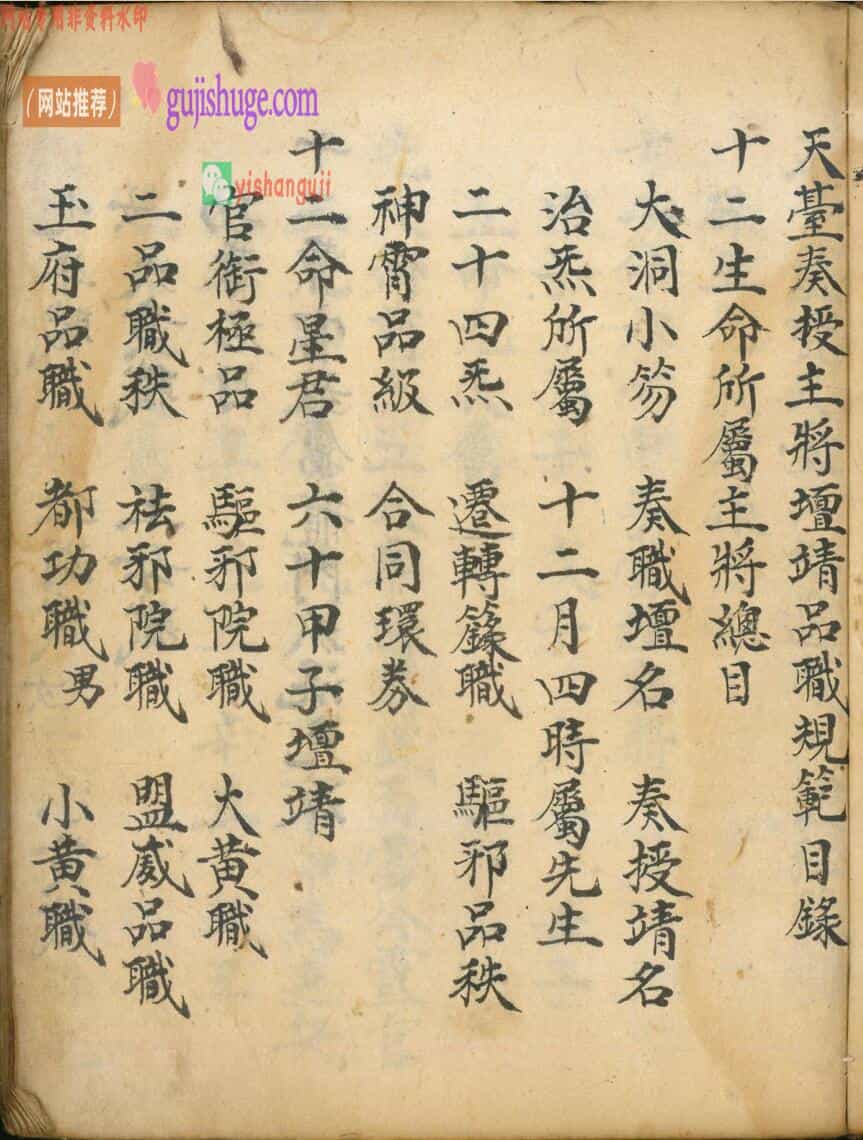 天臺奏授主將壇靖品職規範目錄
十二生命所屬主將總目
大洞小笏 奏職壇名 奏授靖名
治炁所屬 十二月四時屬先生
二十四炁 遷轉籙職 驅邪品秩
神霄品級 合同環券
十二命星君 六十甲子壇靖
官銜極品 驅邪院職 大黄職
二品職秩 祛邪院職 盟威品職
玉府品職 都功職男 小黄職
(网站推荐)
gujishuge.com
yishanguji